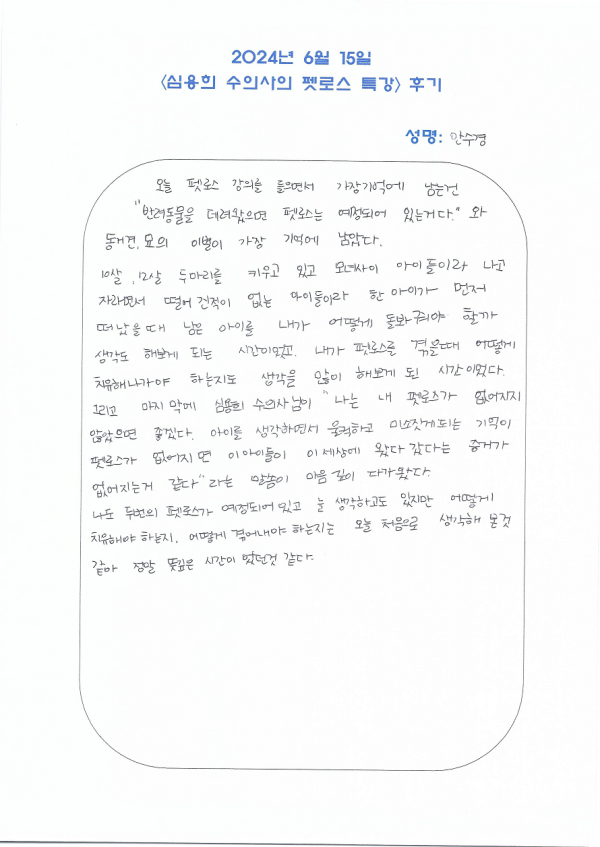 2024년 6월 15일
<심용희 수의사의 펫로스 특강> 후기
성명: 안수경
오늘 펫로스 강의를 들으면서 가장기억에 남는건
"반려동물을 데려왔으면 펫로스는 예정되어 있는거다." 와
동거견,묘의 이별이 가장 기억에 남았다.
10살, 12살 두마리를 키우고 있고 모녀사이 아이들이라 나고
자라면서 떨어진적이 없는 아이들이라 한 아이가 먼저
떠났을때 남은 아이를 내가 어떻게 돌봐줘야 할까
생각도 해보게 되는 시간이였고. 내가 펫로스를 겪을때 어떻게
치유해나가야 하는지도 생각을 많이 해보게 된 시간이었다.
그리고 마지막에 심용희 수의사님이 "나는 내 펫로스가 없어지지
않았으면 좋겠다. 아이를 생각하면서 울컥하고 미소짓게되는 기억이
펫로스가 없어지면 이아이들이 이세상에 왔다갔다는 증거가
없어지는거 같다" 라는 말씀이 마음 깊이 다가왔다.
나도 두번의 펫로스가 예정되어있고 늘 생각하고도 있지만 어떻게
치유해야 하는지. 어떻게 겪어내야 하는지는 오늘 처음으로 생각해 본것
같아 정말 뜻깊은 시간이 였던것 같다.